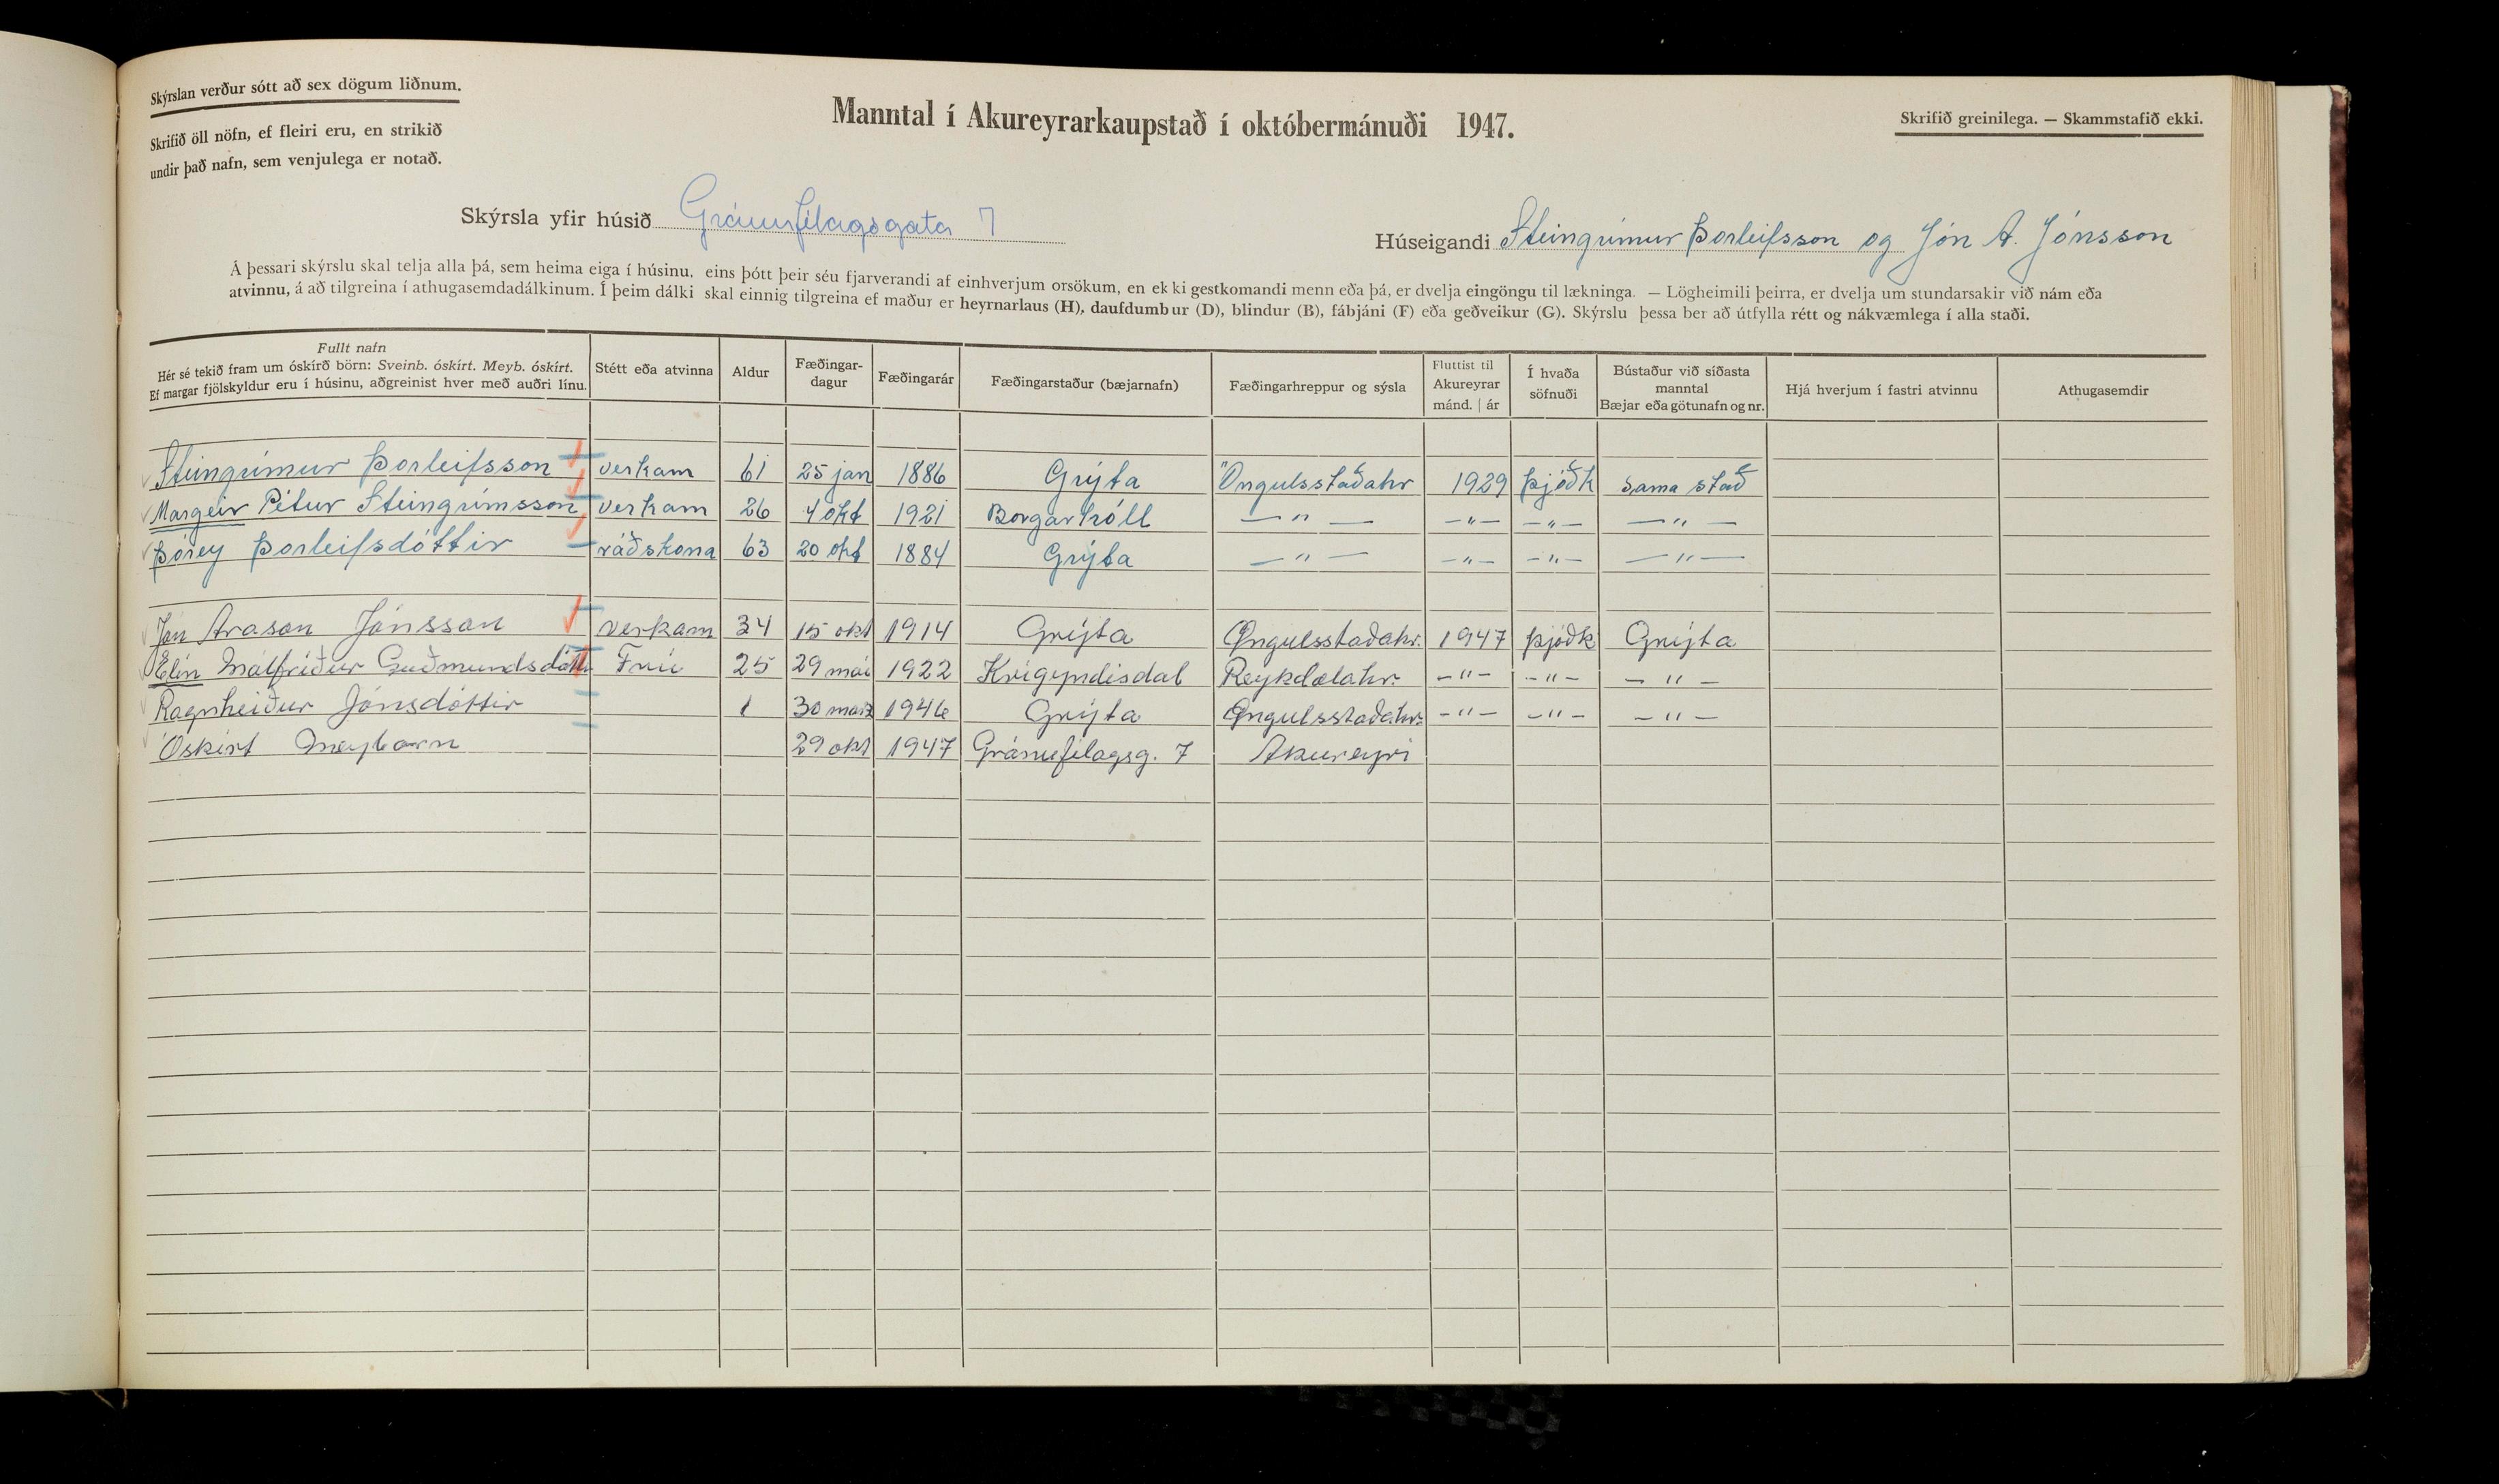 Skýrslan verður sótt að sex dögum liðnum.
Skrifið öll nöfn, ef fleiri eru, en strikið
undir það nafn, sem venjulega er notað.
Manntal í Akureyrarkaupstað í októbermánuði 1947.
Skrifið greinilega. — Skammstafið ekki.
Skýrsla yfir húsið Gránufélagsgata 7
Húseigandi Steingrímur Þorleifsson og Jón A. Jónsson
Á þessari skýrslu skal telja alla þá, sem heima eiga í húsinu, eins þótt þeir séu fjarverandi af einhverjum orsökum, en ekki gestkomandi menn eða þá, er dvelja eingöngu til lækninga. — Lögheimili þeirra, er dvelja um stundarsakir við nám eða
atvinnu, á að tilgreina í athugasemdadálkinum. Í þeim dálki skal einnig tilgreina ef maður er heyrnarlaus (H), daufdumbur (D), blindur (B), fábjáni (F) eða geðveikur (G). Skýrslu þessa ber að útfylla rétt og nákvæmlega í alla staði.
Fullt nafn
Hér sé tekið fram um óskírð börn: Sveinb. óskírt. Meyb. óskírt.
Ef margar fjölskyldur eru í húsinu, aðgreinist hver með auðri línu.
Stétt eða atvinna
Aldur
Fæðingar-
dagur
Fæðingarár
Fæðingarstaður (bæjarnafn)
Fæðingarhreppur og sýsla
Fluttist til
Akureyrar
mánd. | ár
Í hvaða
söfnuði
Bústaður við síðasta
manntal
Bæjar eða götunafn og nr.
Hjá hverjum í fastri atvinnu
Athugasemdir
Steingrímur Þorleifsson verkam 61 25 jan 1886 Grýta Öngulsstaðahr 1929 þjóðk sama stað
Margeir Pétur Steingrímsson verkam 26 4 okt 1921 Borgarhóll —"— —"— —"— —"—
Þórey Þorleifsdóttir ráðskona 63 20 okt 1884 Grýta —"— —"— —"— —"—
Jón Arason Jónsson verkam 34 15 okt 1914 Grýta Öngulsstaðahr. 1947 þjóðk Grýta
Elín Málfríður Guðmundsdótti Frú 25 29 mai 1922 Kvígyndisdal Reykdælahr. —"— —"— —"—
Ragnheiður Jónsdóttir 1 30 marz 1946 Grýta Öngulsstaðahr. —"— —"— —"—
Óskírt Meybarn 29 okt 1947 Gránufélagsg. 7 Akureyri